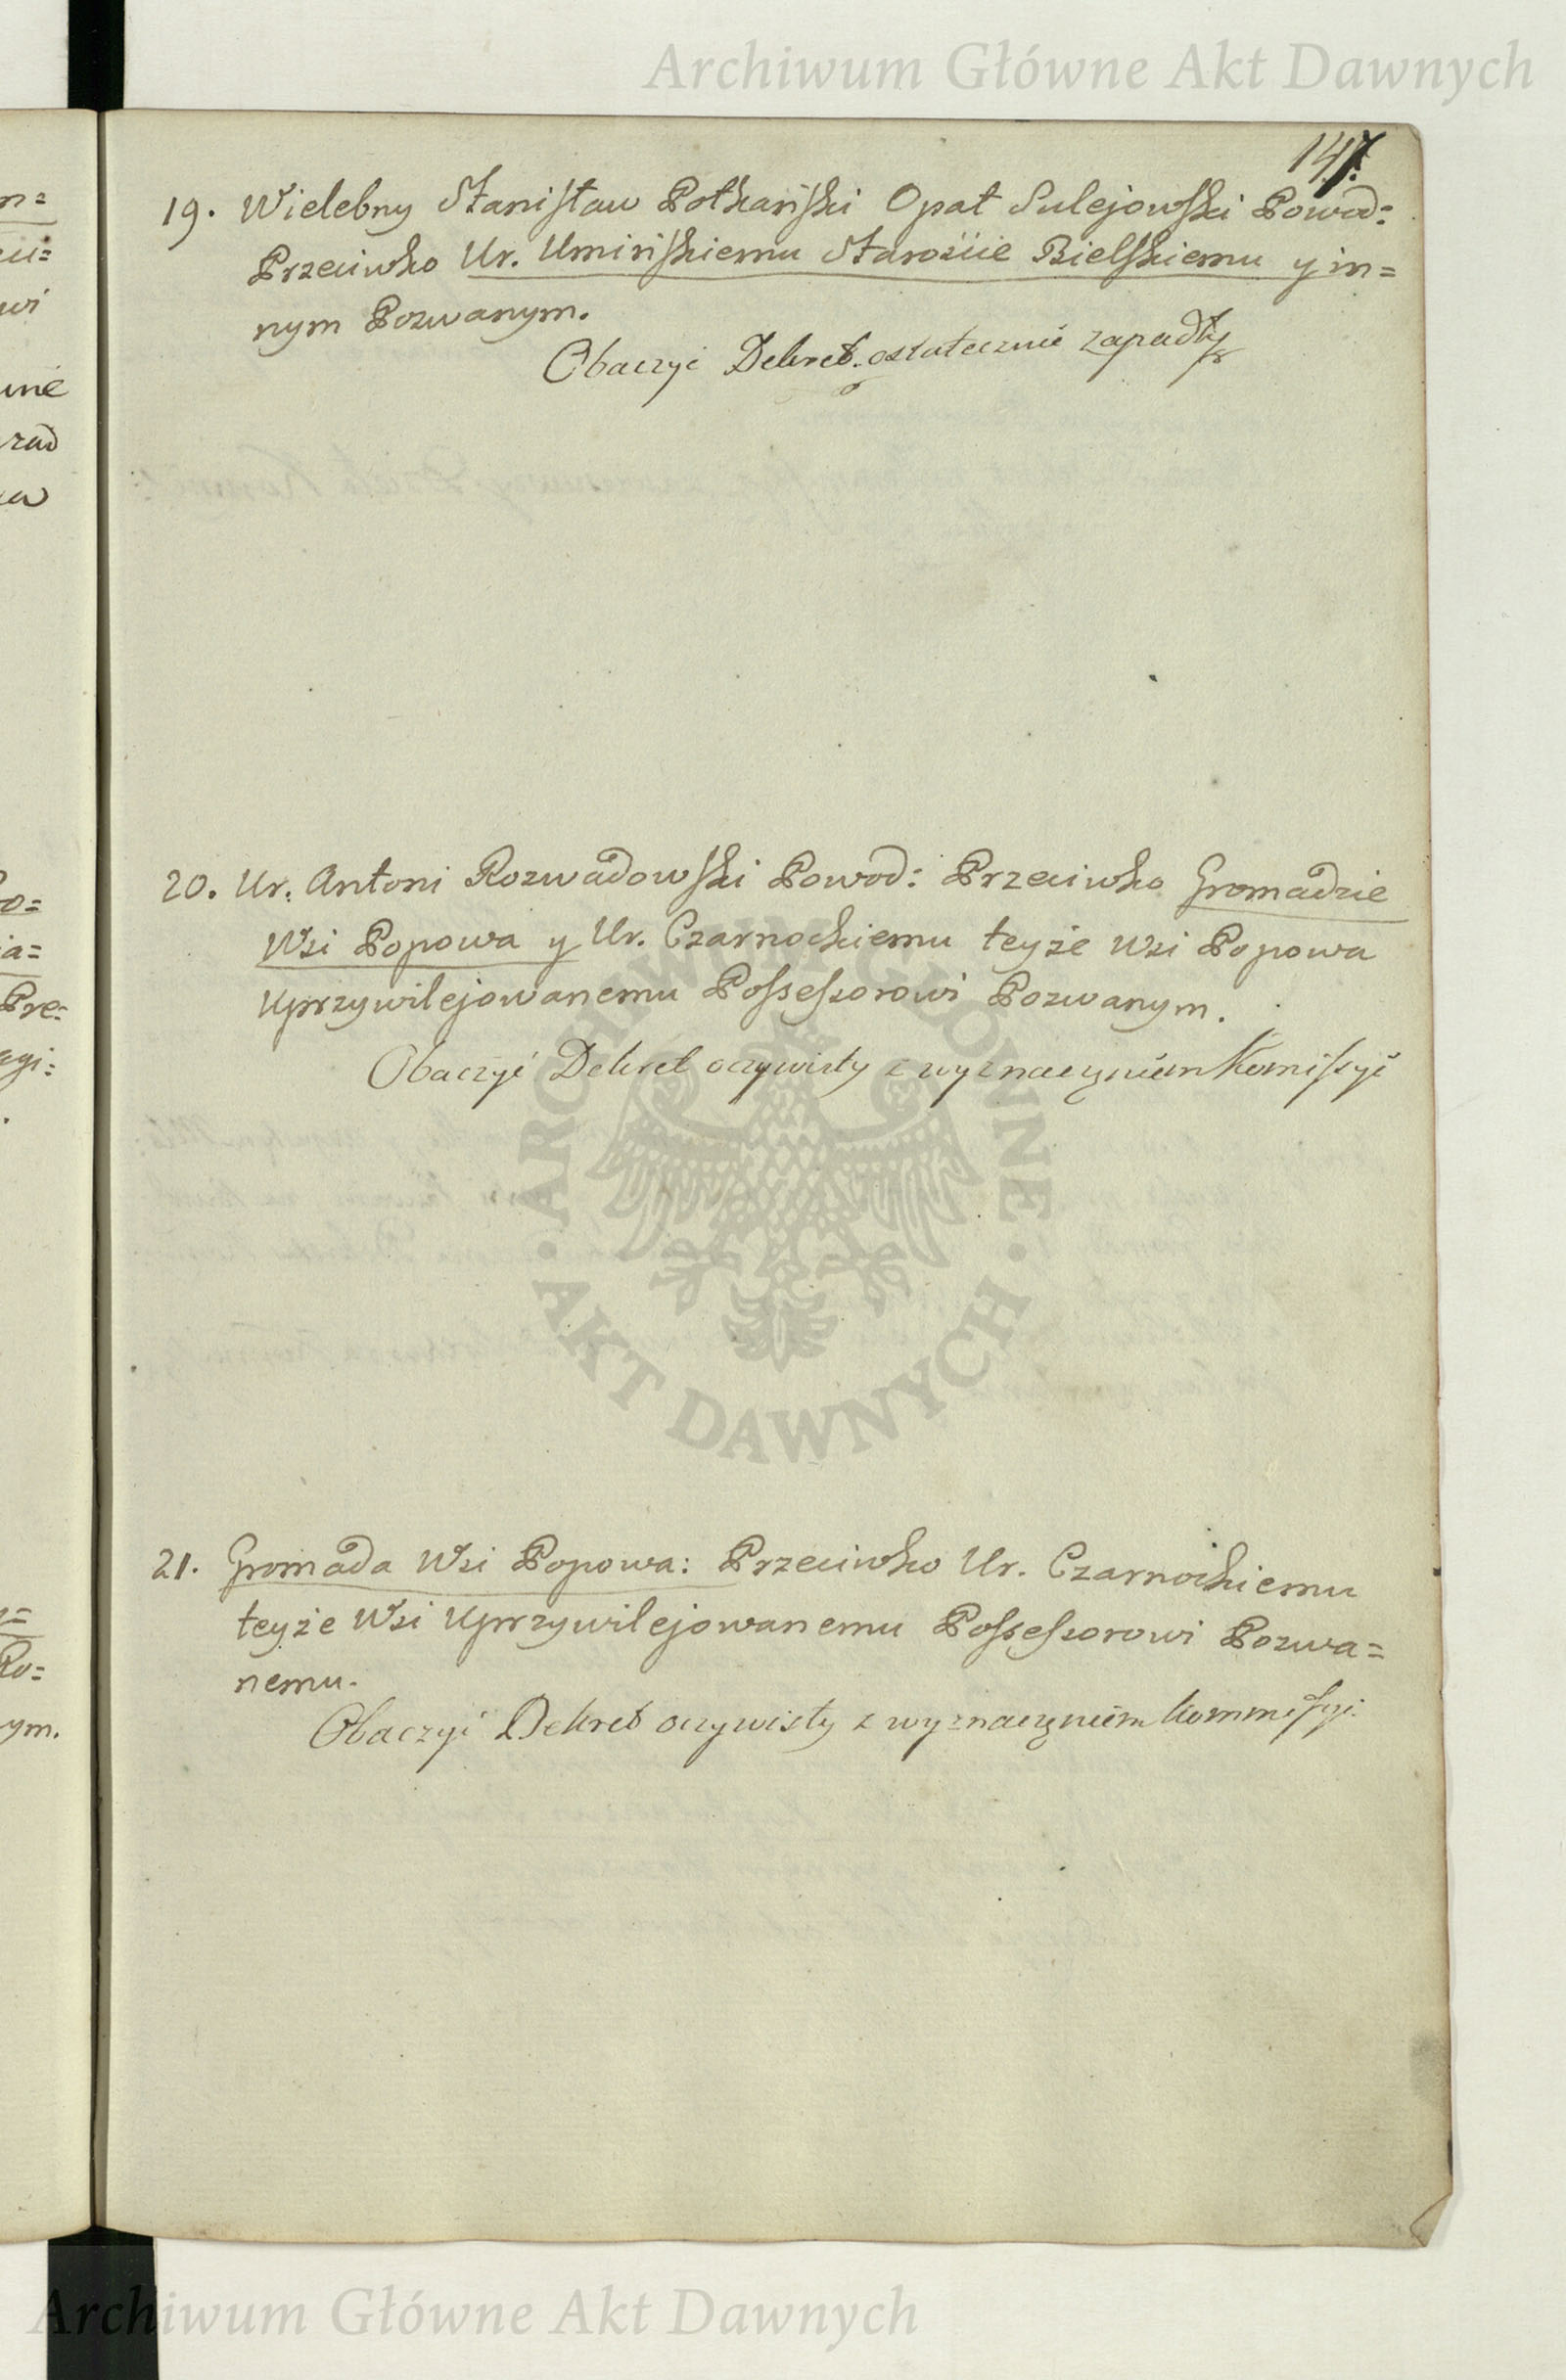 Archiwum Główne Akt Dawnych
147.
19. Wielebny Stanisław Potkański Opat Sulejowski Powod:
Przeciwko Ur. Umińskiemu Starościie Bielskiemu y in=
nym Pozwanym.
Obaczyć Dekret ostatecznie zapadły
20. Ur. Antoni Rozwadowski Powod: Przeciwko Gromadzie
Wsi Popowa y Ur. Czarnockiemu teyże Wsi Popowa
Uprzywilejowanemu Possessorowi Pozwanym.
Obaczyć Dekret oczywisty z wyznaczeniem Komissyi
21. Gromada Wsi Popowa: Przeciwko Ur. Czarnockiemu
teyże Wsi Uprzywilejowanemu Possessorowi Pozwa=
nemu.
Obaczyć Dekret oczywisty z wyznaczeniem Kommissyi
ARCHIWUM GŁÓWNE
AKT DAWNYCH
Archiwum Główne Akt Dawnych